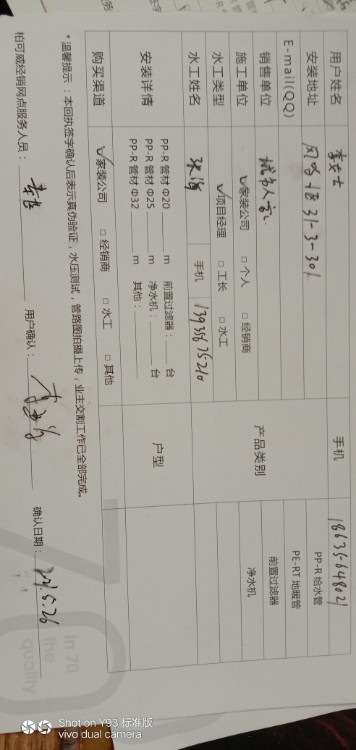 用户姓名 李女士 手机
安装地址 凤鸣小区31-3-301 PP-R 给水管
E-mail(QQ) PE-RT 地暖管
销售单位 城市人家 产品类别 前置过滤器
施工单位 ☑家装公司 □ 个人 □ 经销商 净水机
水工类型 ☑项目经理 □ 工长 □ 水工
水工姓名 手机
安装详情 PP-R 管材 Φ20 m 前置过滤器: 台 户型
PP-R 管材 Φ25 m 净水机: 台
PP-R 管材 Φ32 m 其他:
购买渠道 ☑家装公司 □ 经销商 □ 水工 □ 其他
*温馨提示:本回执签字确认后表示真伪验证,水压测试,管路图拍摄上传,业主交割工作已全部完成。
柏可威经销网点服务人员: 用户确认: 确认日期: 21.5.26
In 70
the
quality
Shot on Y93 标准版
vivo dual camera